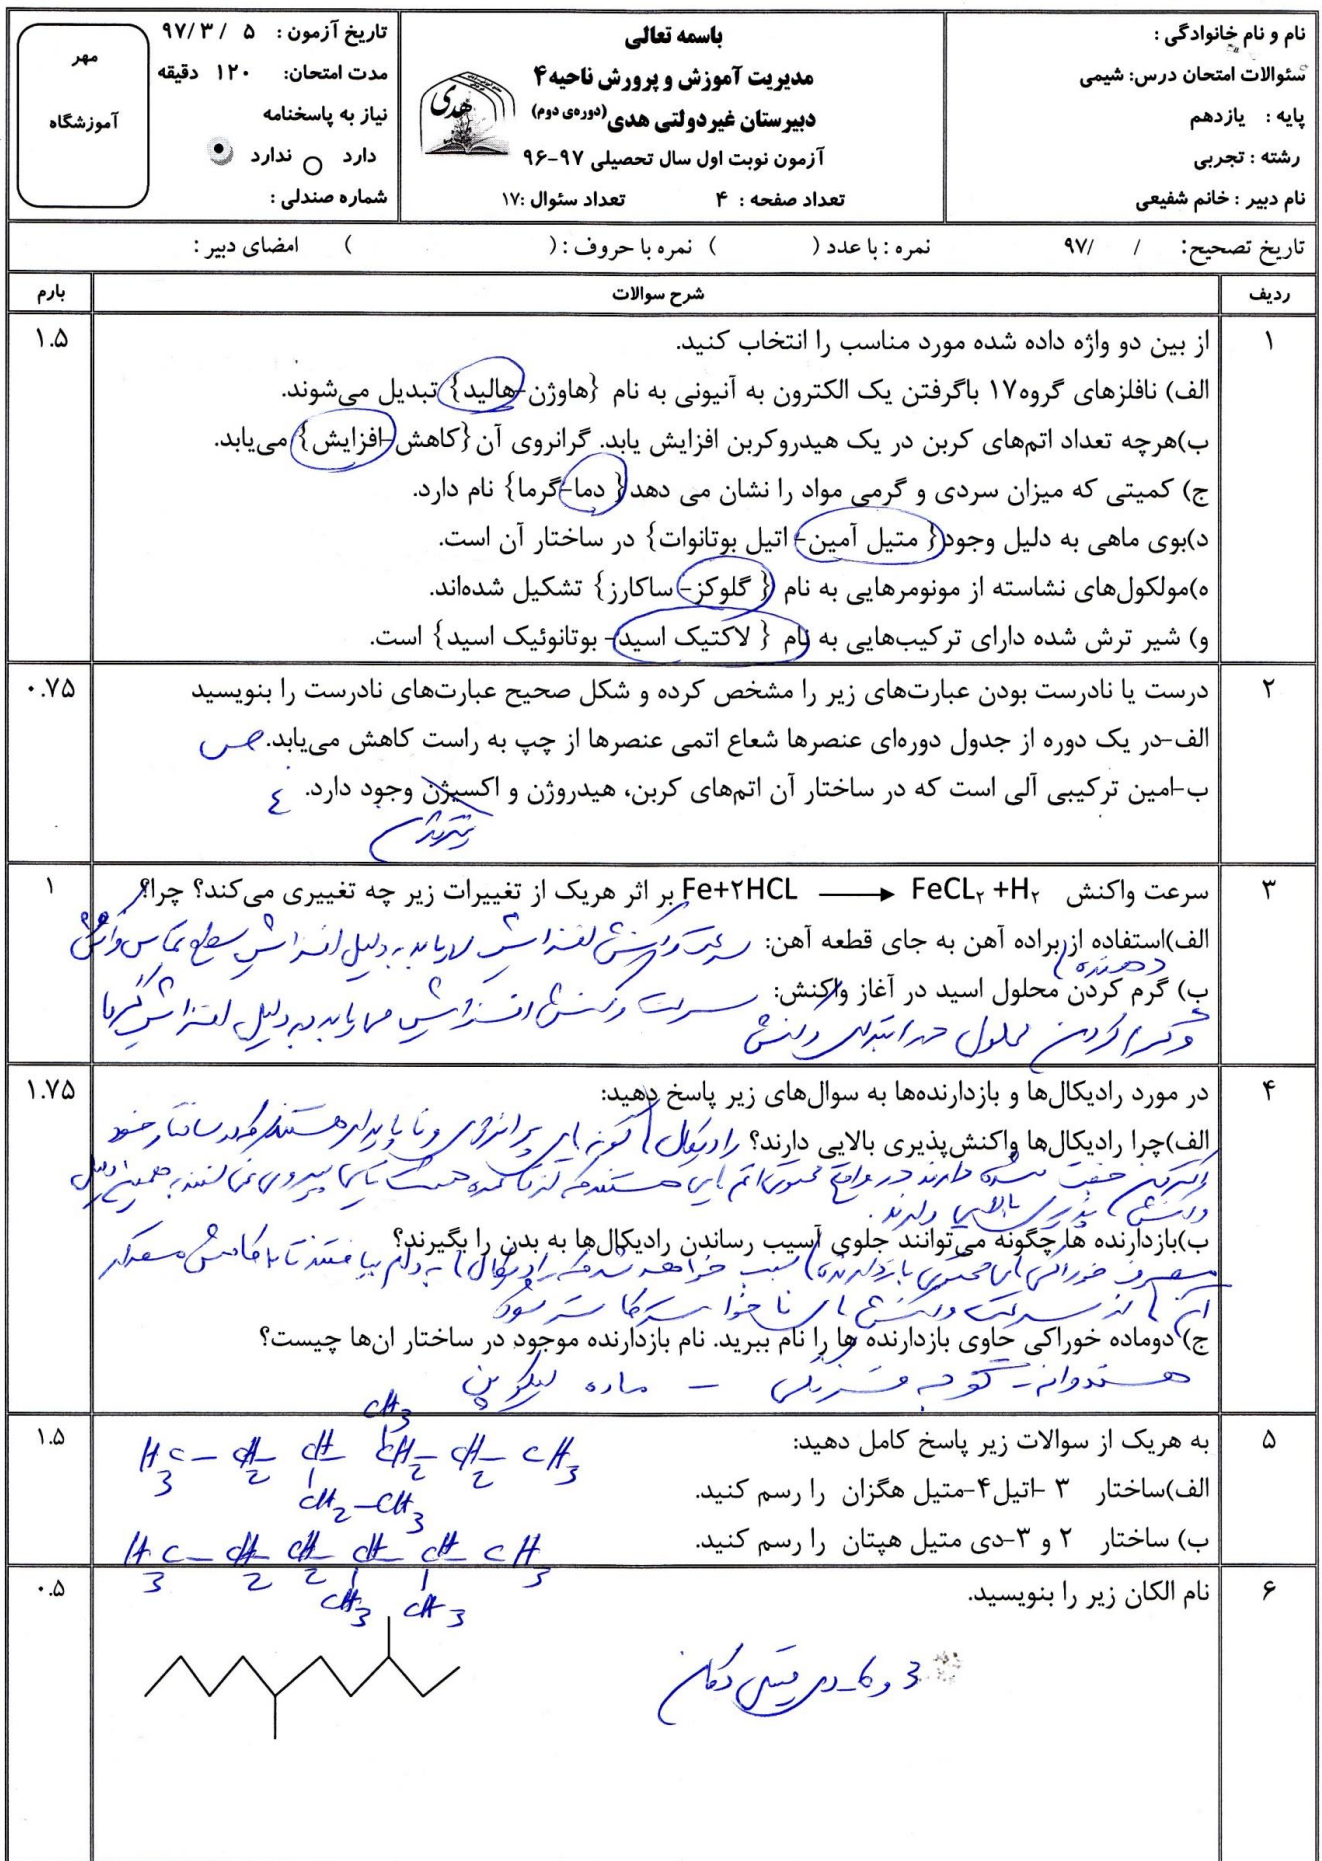 نام و نام خانوادگی :
سئوالات امتحان درس: شیمی
پایه : یازدهم
رشته : تجربی
نام دبیر : خانم شفیعی
باسمه تعالی
مدیریت آموزش و پرورش ناحیه ۴
دبیرستان غیردولتی هدی (دوره‌ی دوم)
آزمون نوبت اول سال تحصیلی ۹۷-۹۶
تعداد صفحه : ۴ تعداد سئوال :۱۷
هدی
تاریخ آزمون : ۵ / ۳ / ۹۷
مدت امتحان: ۱۲۰ دقیقه
نیاز به پاسخنامه
دارد ندارد
شماره صندلی :
مهر
آموزشگاه
تاریخ تصحیح: / /۹۷ نمره : با عدد ( ) نمره با حروف : ( ) امضای دبیر :
ردیف شرح سوالات بارم
۱ از بین دو واژه داده شده مورد مناسب را انتخاب کنید. ۱.۵
الف) نافلزهای گروه۱۷ باگرفتن یک الکترون به آنیونی به نام {هاوژن-هالید} تبدیل می‌شوند.
ب)هرچه تعداد اتم‌های کربن در یک هیدروکربن افزایش یابد. گرانروی آن {کاهش-افزایش} می‌یابد.
ج) کمیتی که میزان سردی و گرمی مواد را نشان می دهد { دما-گرما} نام دارد.
د)بوی ماهی به دلیل وجود { متیل آمین- اتیل بوتانوات} در ساختار آن است.
ه)مولکول‌های نشاسته از مونومرهایی به نام { گلوکز- ساکارز} تشکیل شده‌اند.
و) شیر ترش شده دارای ترکیب‌هایی به نام { لاکتیک اسید- بوتانوئیک اسید} است.
۲ درست یا نادرست بودن عبارت‌های زیر را مشخص کرده و شکل صحیح عبارت‌های نادرست را بنویسید ۰.۷۵
الف-در یک دوره از جدول دوره‌ای عنصرها شعاع اتمی عنصرها از چپ به راست کاهش می‌یابد. ص
ب-امین ترکیبی آلی است که در ساختار آن اتم‌های کربن، هیدروژن و اکسیژن وجود دارد. غ
نیتروژن
۳ سرعت واکنش Fe+۲HCL ⟶ FeCL₂ +H₂ بر اثر هریک از تغییرات زیر چه تغییری می‌کند؟ چرا؟ ۱
الف)استفاده از براده آهن به جای قطعه آهن: سرعت واکنش افزایش می‌یابد به دلیل افزایش سطح تماس واکنش
دهنده ها
ب) گرم کردن محلول اسید در آغاز واکنش: سرعت واکنش افزایش می‌یابد به دلیل افزایش گرما
و گرم کردن محلول در ابتدای واکنش
۴ در مورد رادیکال‌ها و بازدارنده‌ها به سوال‌های زیر پاسخ دهید: ۱.۷۵
الف)چرا رادیکال‌ها واکنش‌پذیری بالایی دارند؟ رادیکال ها گونه ای پر انرژی و نا پایدار هستند که در ساختار خود
الکترون جفت نشده دارند در واقع محتوی اتم هایی هستند که از قاعده هشت تایی پیروی نمی کنند به همین دلیل
واکنش پذیری بالایی دارند.
ب)بازدارنده ها چگونه می‌توانند جلوی آسیب رساندن رادیکال‌ها به بدن را بگیرند؟
مصرف خوراکی های محتوی بازدارنده ها سبب خواهد شد که رادیکال ها به دام بیافتند تا با کاهش مقدار
آن ها از سرعت واکنش های ناخواسته کاسته شود
ج)دوماده خوراکی حاوی بازدارنده ها را نام ببرید. نام بازدارنده موجود در ساختار ان‌ها چیست؟
هندوانه - گوجه فرنگی - ماده لیکوپن
۵ به هریک از سوالات زیر پاسخ کامل دهید: ۱.۵
CH3
H3C - CH2 CH CH2 - CH2 - CH3
الف)ساختار ۳ -اتیل۴-متیل هگزان را رسم کنید.
CH2-CH3
ب) ساختار ۲ و ۳-دی متیل هپتان را رسم کنید.
H3C - CH2 CH2 CH - CH - CH3
CH3 CH3
۶ نام الکان زیر را بنویسید. ۰.۵
3 و 6- دی متیل دکان